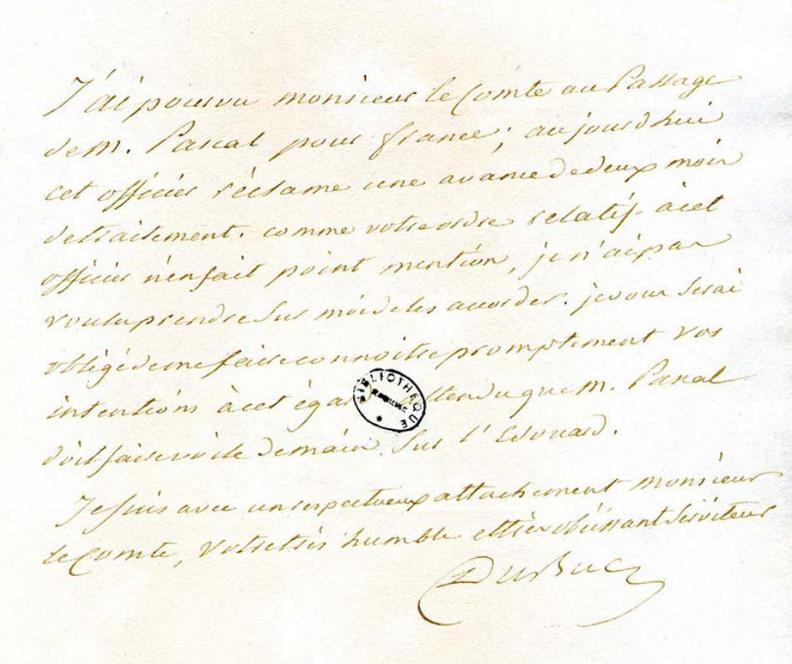 J'ai pourvu monsieur le Comte au Passage
de m. Pascal pour france; aujourdhui
cet officier réclame une avance de deux mois
de traitement. comme votre ordre relatif à cet
officier n'en fait point mention, je n'ai pas
voulu prendre sur moi de les accorder. je vous serai
obligé de me faire connoitre promptement vos
intentions à cet égard attendu que m. Pascal
doit faire voile demain sur l'Edouard.
Je suis avec un respectueux attachement monsieur
le Comte, votre très humble et très obéissant serviteur
DuBuc
BIBLIOTHÈQUE